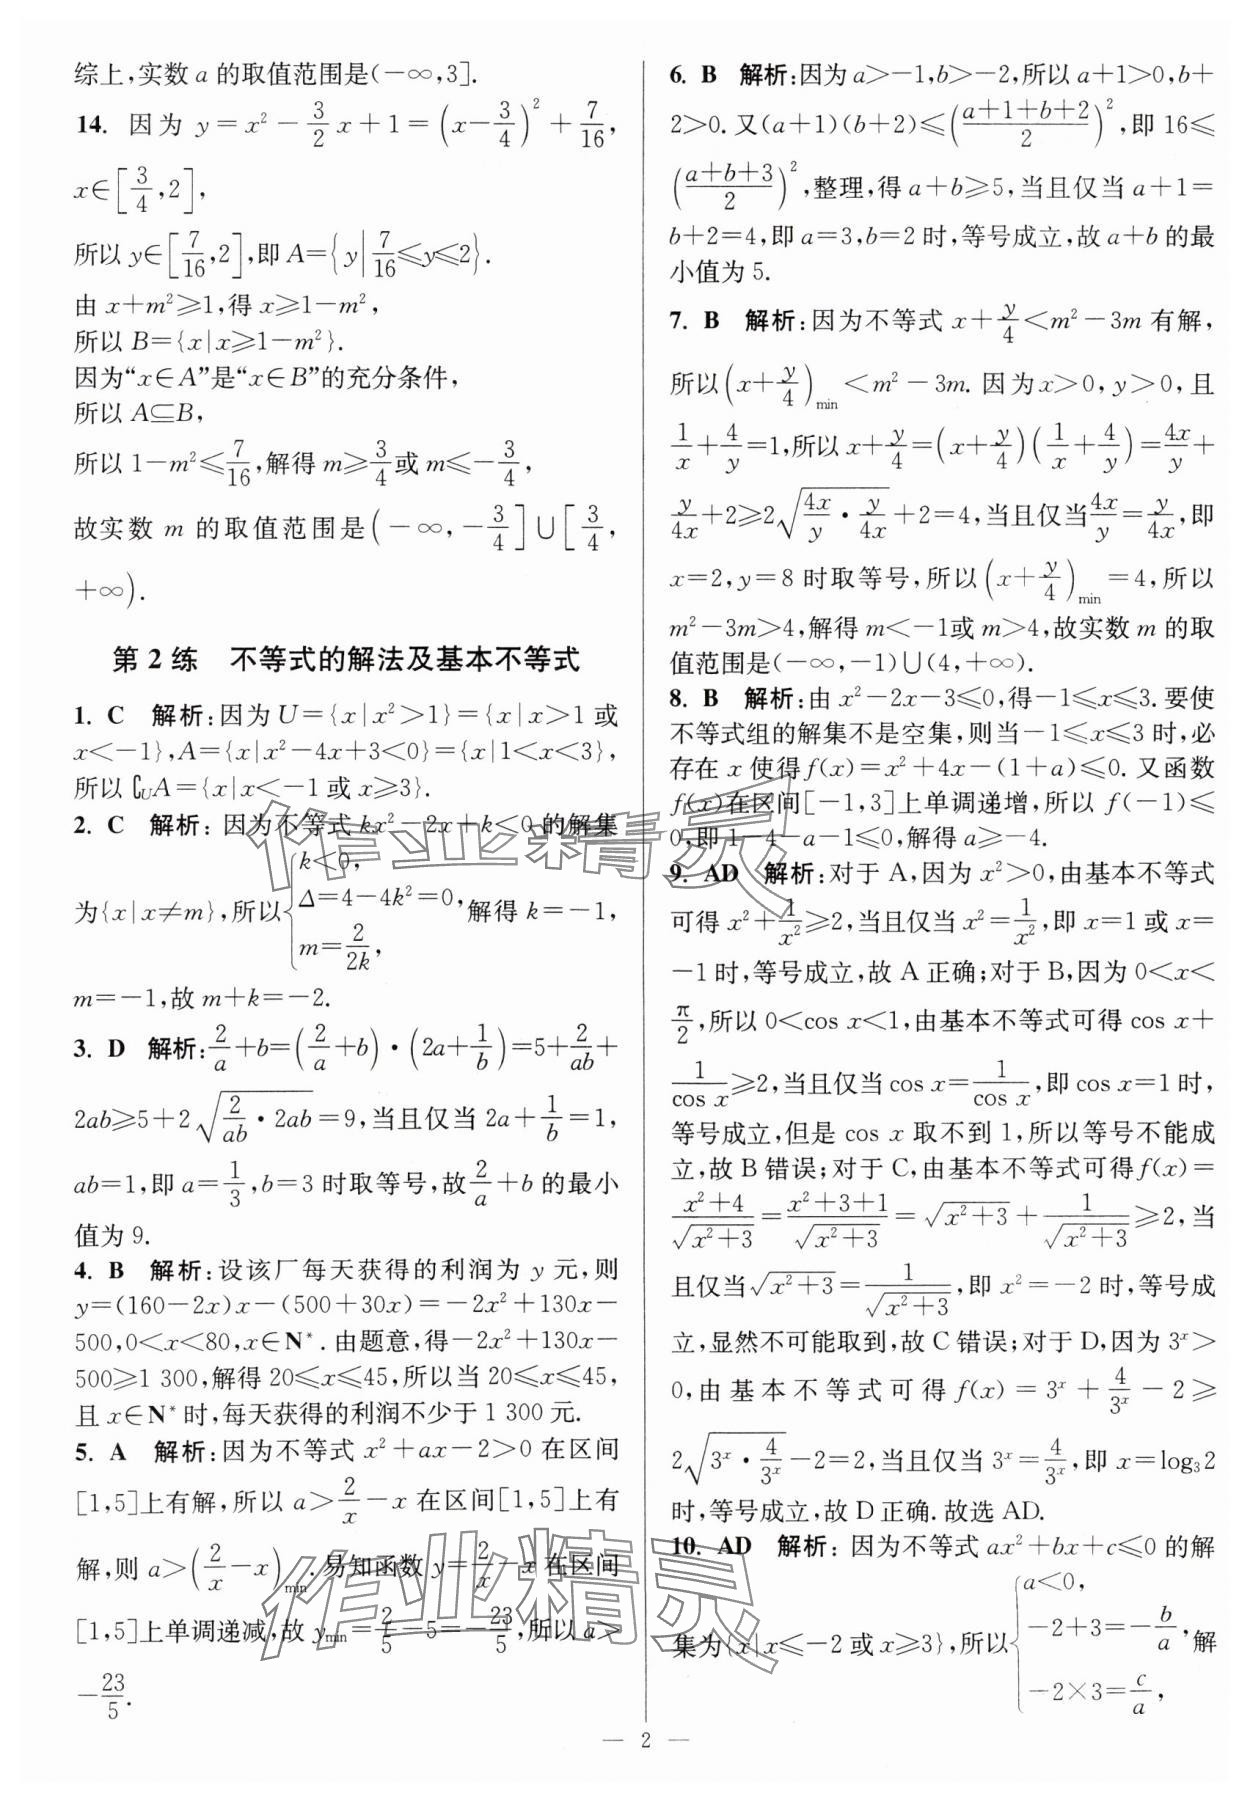 综上,实数 a 的取值范围是(-∞,3].
14. 因为 y=x²-3/2x+1=(x-3/4)²+7/16,
x∈[3/4,2],
所以 y∈[7/16,2],即 A={y|7/16≤y≤2}.
由 x+m²≥1,得 x≥1-m²,
所以 B={x|x≥1-m²}.
因为“x∈A”是“x∈B”的充分条件,
所以 A⊆B,
所以 1-m²≤7/16,解得 m≥3/4或 m≤-3/4,
故实数 m 的取值范围是(-∞,-3/4]∪[3/4,
+∞).
第 2 练 不等式的解法及基本不等式
1. C 解析:因为 U={x|x²>1}={x|x>1 或
x<-1},A={x|x²-4x+3<0}={x|1<x<3},
所以 ∁UA={x|x<-1 或 x≥3}.
2. C 解析: 因为不等式 kx²-2x+k<0 的解集
为{x|x≠m},所以{k<0, Δ=4-4k²=0, m=2/2k, 解得 k=-1,
m=-1,故 m+k=-2.
3. D 解析:2/a+b=(2/a+b)·(2a+1/b)=5+2/ab+
2ab≥5+2√(2/ab·2ab)=9,当且仅当 2a+1/b=1,
ab=1,即 a=1/3,b=3 时取等号,故2/a+b 的最小
值为 9.
4. B 解析:设该厂每天获得的利润为 y 元,则
y=(160-2x)x-(500+30x)=-2x²+130x-
500,0<x<80,x∈N*. 由题意,得-2x²+130x-
500≥1 300,解得 20≤x≤45,所以当 20≤x≤45,
且 x∈N* 时,每天获得的利润不少于 1 300 元.
5. A 解析:因为不等式 x²+ax-2>0 在区间
[1,5]上有解,所以 a>2/x-x 在区间[1,5]上有
解,则 a>(2/x-x)min. 易知函数 y=2/x-x 在区间
[1,5]上单调递减,故 ymin=2/5-5=-23/5,所以 a>
-23/5.
6. B 解析:因为 a>-1,b>-2,所以 a+1>0,b+
2>0. 又(a+1)(b+2)≤((a+1+b+2)/2)²,即 16≤
((a+b+3)/2)²,整理,得 a+b≥5,当且仅当 a+1=
b+2=4,即 a=3,b=2 时,等号成立,故 a+b 的最
小值为 5.
7. B 解析:因为不等式 x+y/4<m²-3m 有解,
所以(x+y/4)min<m²-3m. 因为 x>0,y>0,且
1/x+4/y=1,所以 x+y/4=(x+y/4)(1/x+4/y)=4x/y+
y/4x+2≥2√(4x/y·y/4x)+2=4,当且仅当4x/y=y/4x,即
x=2,y=8 时取等号,所以(x+y/4)min=4,所以
m²-3m>4,解得 m<-1或 m>4,故实数 m 的取
值范围是(-∞,-1)∪(4,+∞).
8. B 解析:由 x²-2x-3≤0,得-1≤x≤3.要使
不等式组的解集不是空集,则当-1≤x≤3 时,必
存在 x 使得 f(x)=x²+4x-(1+a)≤0. 又函数
f(x)在区间[-1,3]上单调递增,所以 f(-1)≤
0,即 1-4-a-1≤0,解得 a≥-4.
9. AD 解析:对于 A,因为 x²>0,由基本不等式
可得 x²+1/x²≥2,当且仅当 x²=1/x²,即 x=1 或 x=
-1 时,等号成立,故 A 正确;对于 B,因为 0<x<
π/2,所以 0<cos x<1,由基本不等式可得 cos x+
1/cos x≥2,当且仅当 cos x=1/cos x,即 cos x=1 时,
等号成立,但是 cos x 取不到 1,所以等号不能成
立,故 B 错误;对于 C,由基本不等式可得 f(x)=
(x²+4)/√(x²+3)=(x²+3+1)/√(x²+3)=√(x²+3)+1/√(x²+3)≥2,当
且仅当√(x²+3)=1/√(x²+3),即 x²=-2 时,等号成
立,显然不可能取到,故 C 错误;对于 D,因为 3ˣ>
0,由基本不等式可得 f(x)=3ˣ+4/3ˣ-2≥
2√(3ˣ·4/3ˣ)-2=2,当且仅当 3ˣ=4/3ˣ,即 x=log₃2
时,等号成立,故 D 正确.故选 AD.
10. AD 解析: 因为不等式 ax²+bx+c≤0 的解
集为{x|x≤-2 或 x≥3},所以{a<0, -2+3=-b/a, -2×3=c/a, 解
— 2 —
作业精灵
作业精灵